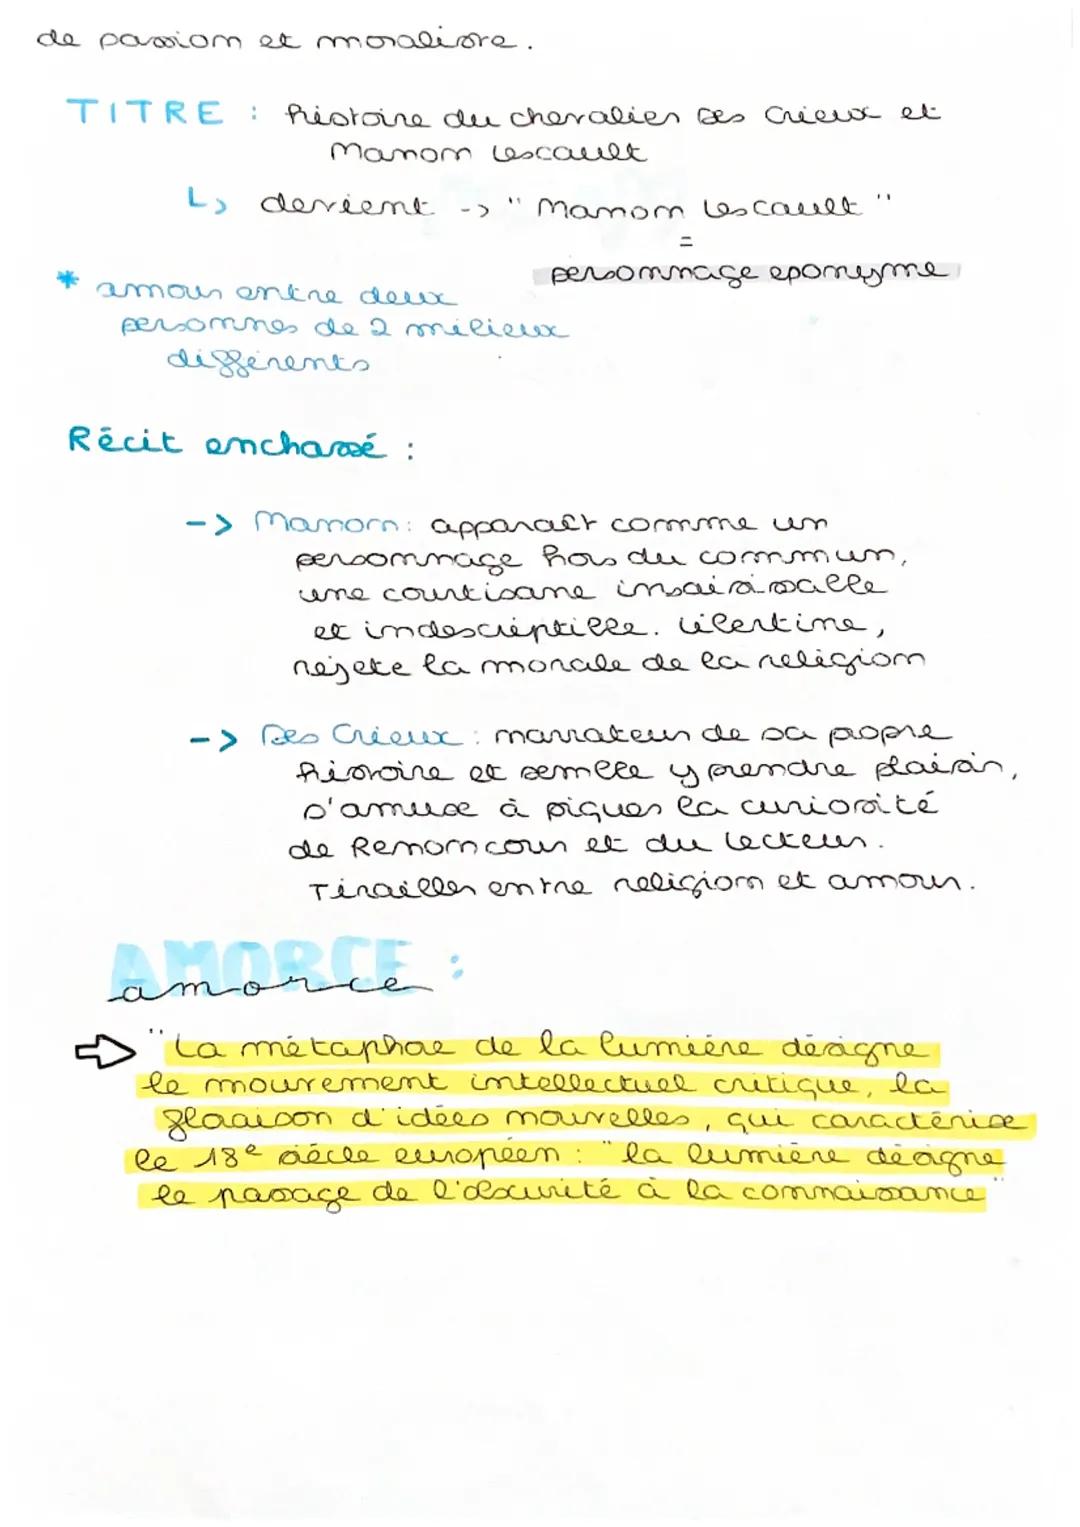 de passion et moralisre.
TITRE : histoire du chevalier Des Grieux et
Manon Lescault
↳ devient -> "Manon Lescault"
=
personnage eponyme
* amour entre deux
personnes de 2 milieux
différents
Récit enchassé :
-> Manon : apparaît comme un
personnage hors du commun,
une courtisane insaisissable
et indescriptible. Libertine,
rejete la morale de la religion
-> Des Grieux : narrateur de sa propre
histoire et semble y prendre plaisir,
s'amuse à piquer la curiosité
de Renoncour et du lecteur.
Tirailler entre religion et amour.
AMORCE :
amorce
⇨ "La métaphore de la lumière désigne
le mouvement intellectuel critique, la
floraison d'idées nouvelles, qui caractérise
le 18e siècle européen : "la lumière désigne
le passage de l'obscurité à la connaissance"